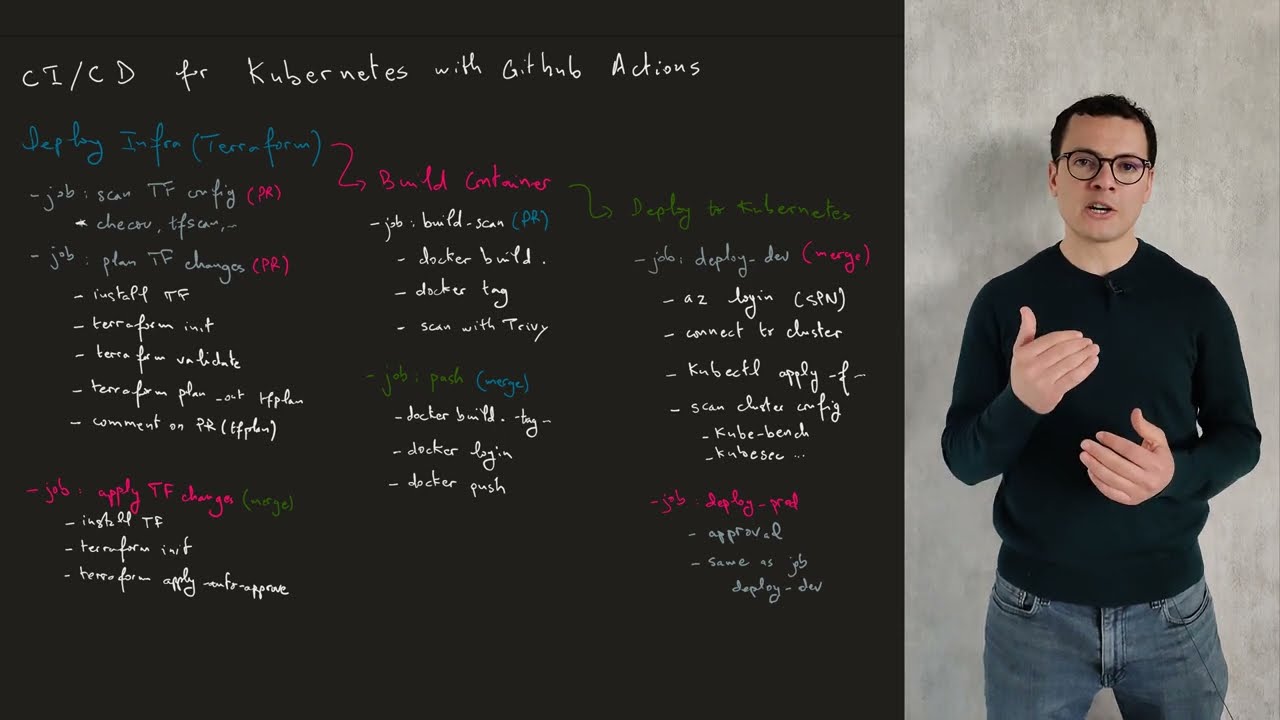 CI/CD for Kubernetes with Github Actions
Deploy Infra (Terraform)
- job: scan TF config (PR)
* checov, tfscan,..
- job: plan TF changes (PR)
- install TF
- terraform init
- terraform validate
- terraform plan -out tfplan
- comment on PR (tfplan)
- job: apply TF changes (merge)
- install TF
- terraform init
- terraform apply -auto-approve
Build Container
- job: build-scan (PR)
- docker build .
- docker tag
- scan with Trivy
- job: push (merge)
- docker build . -tag -
- docker login
- docker push
Deploy to Kubernetes
- job: deploy_dev (merge)
- az login (SPN)
- connect to cluster
- Kubectl apply -f -
- scan cluster config
- Kube-bench
- Kubesec ...
- job: deploy-prod
- approval
- same as job
deploy-dev